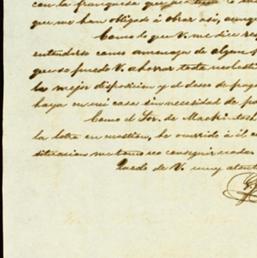 con la franqueza que
que me han obligado á obrar así, aunq
Como lo que V. me dice
entenderse como amenaza de algun
que se puede V. ahorrar esta molestia
la mejor disposicion y el deseo de pag
haya en mi casa sin necesidad de
Como el Sor. de Macki
la letra en cuestion, ha ocurrido á él
situacion
Quedo de V. muy atent